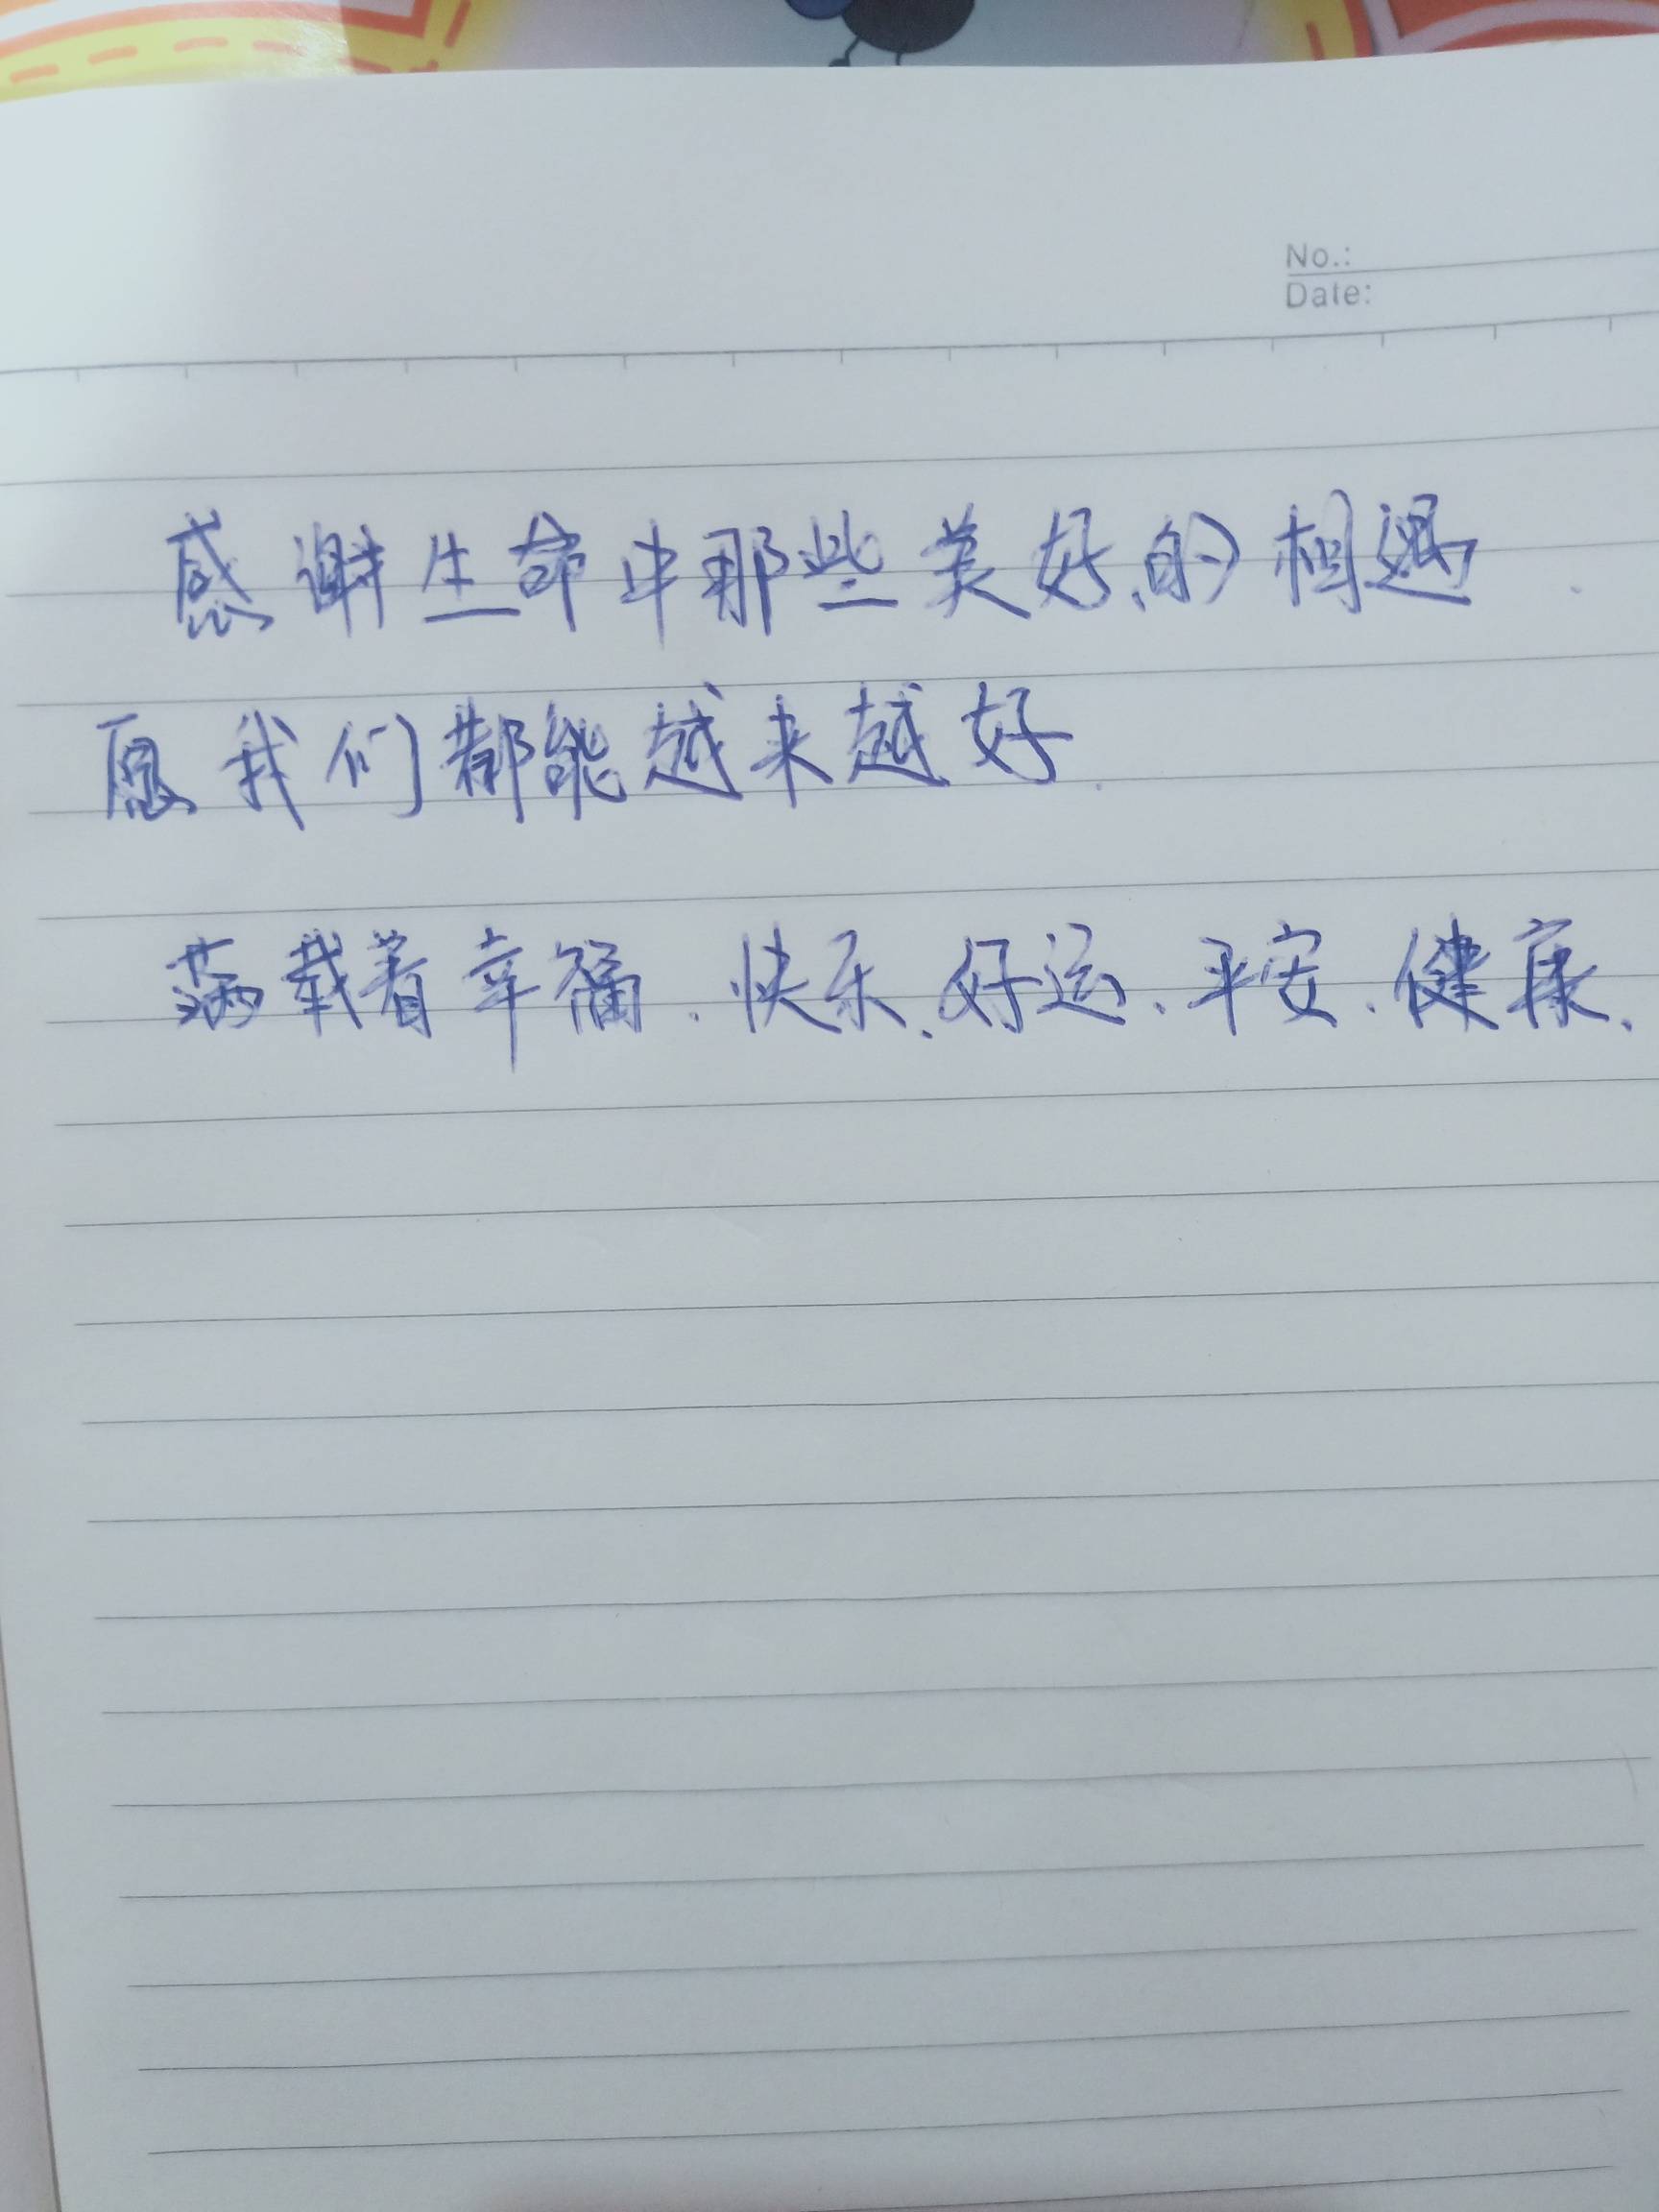 No.:
Date:
感谢生命中那些美好的相遇.
愿我们都能越来越好.
满载着幸福、快乐、好运、平安、健康、